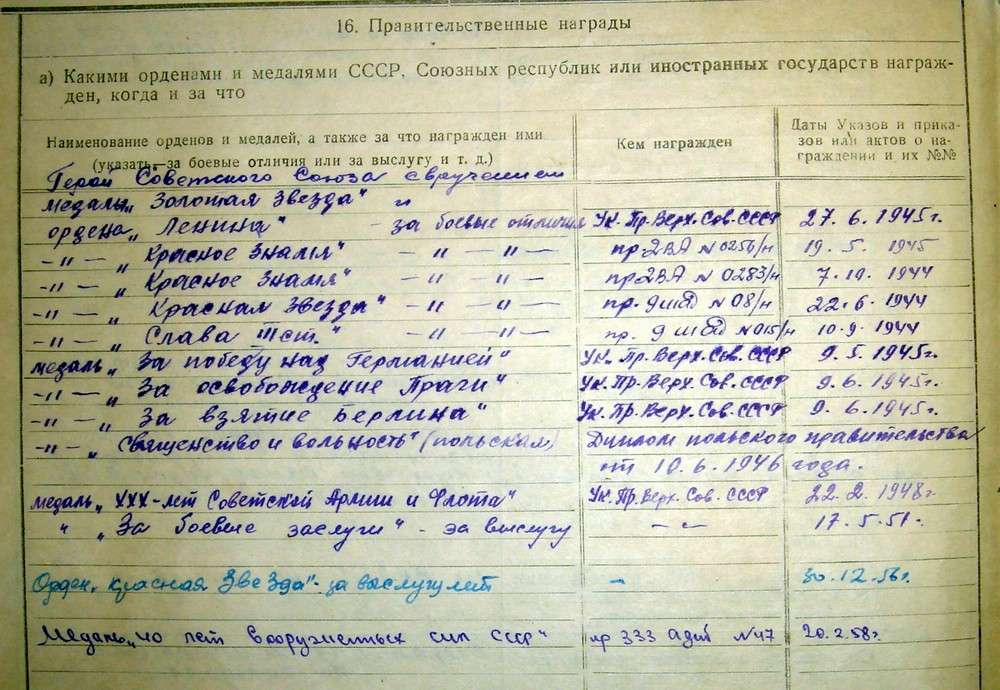 16. Правительственные награды
а) Какими орденами и медалями СССР, Союзных республик или иностранных государств награж-
ден, когда и за что
Наименование орденов и медалей, а также за что награжден ими
(указать—за боевые отличия или за выслугу и т. д.)
Кем награжден
Даты Указов и прика-
зов или актов о на-
граждении и их №№
Герой Советского Союза с вручением
медаль „Золотая Звезда" и
ордена „Ленина" за боевые отличия Ук. Пр. Верх. Сов. СССР 27. 6. 1945 г.
–„– „Красное Знамя" –„– –„– пр. 2ВА N 0256/н 19. 5. 1945
–„– „Красное Знамя" –„– –„– пр. 2ВА N 0283/н 7. 10. 1944
–„– „Красная Звезда" –„– –„– пр. 9 шад N 08/н 22. 6. 1944
–„– „Слава III ст." –„– –„– пр. 9 шад N 015/н 10. 9. 1944
медаль „За победу над Германией" Ук. Пр. Верх. Сов. СССР 9. 5. 1945 г.
–„– „За освобождение Праги" Ук. Пр. Верх. Сов. СССР 9. 6. 1945 г.
–„– „За взятие Берлина" Ук. Пр. Верх. Сов. СССР 9. 6. 1945 г.
–„– „Священство и вольность" (польская) Диплом польского правительства
от 10. 6. 1946 года.
медаль „XXX-лет Советской Армии и Флота" Ук. Пр. Верх. Сов. СССР 22. 2. 1948 г.
" „За боевые заслуги" - за выслугу –„– 17. 5. 51 г.
Орден „Красная Звезда" - за выслугу лет – 30. 12. 56 г.
Медаль „40 лет вооруженных сил СССР" пр 333 N 47 20. 2. 58 г.